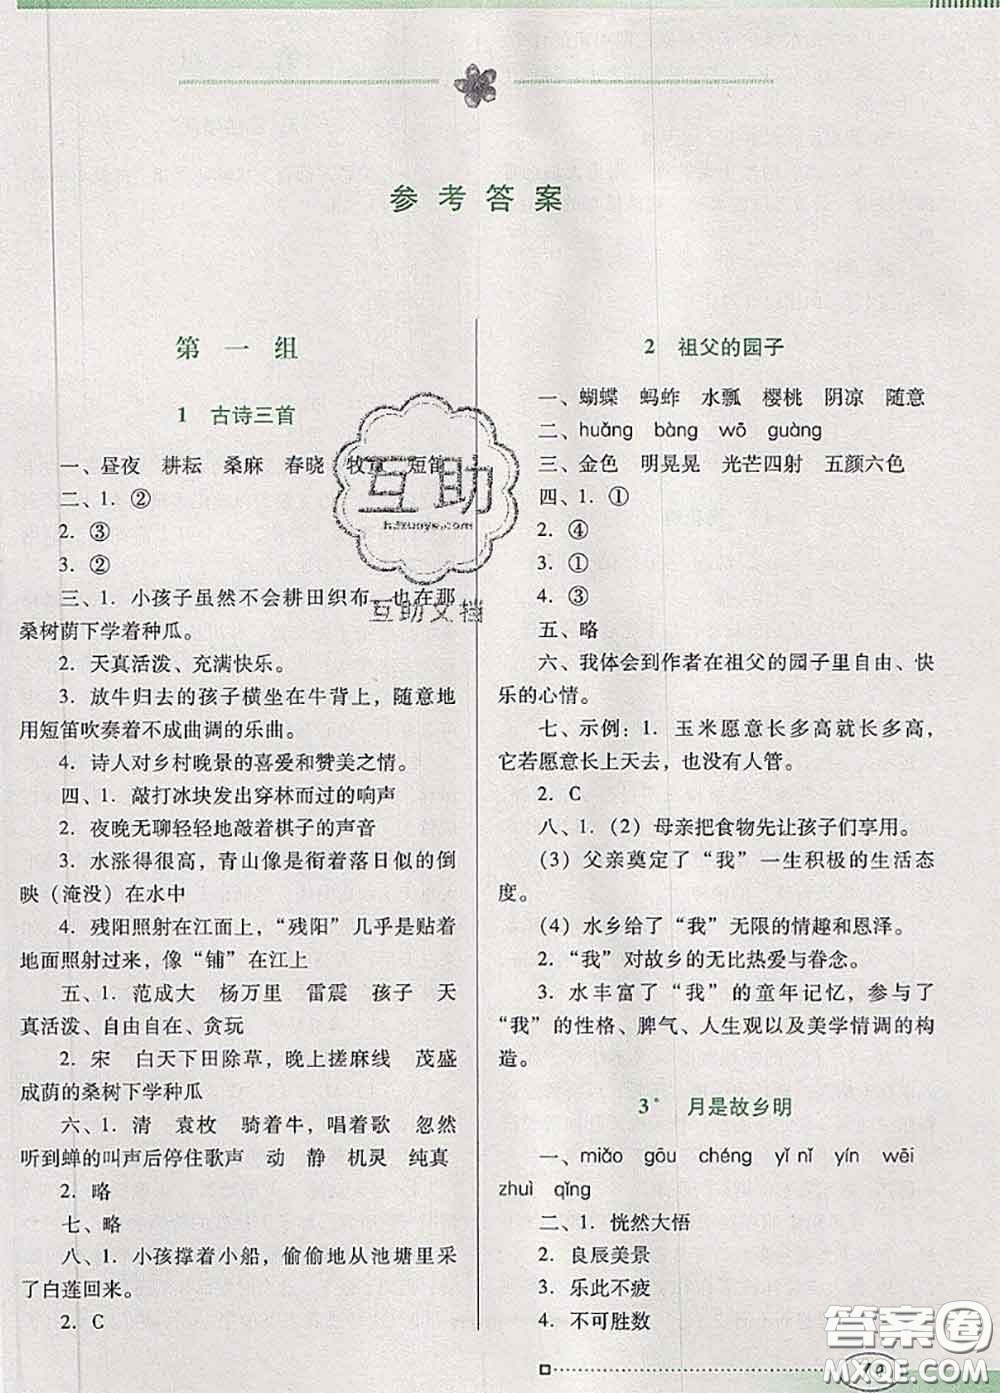 参考答案
第一组
1 古诗三首
一、昼夜 耕耘 桑麻 春晓 牧童 短笛
二、1. ②
2. ③
3. ②
三、1. 小孩子虽然不会耕田织布，也在那
桑树荫下学着种瓜。
2. 天真活泼、充满快乐。
3. 放牛归去的孩子横坐在牛背上，随意地
用短笛吹奏着不成曲调的乐曲。
4. 诗人对乡村晚景的喜爱和赞美之情。
四、1. 敲打冰块发出穿林而过的响声
2. 夜晚无聊轻轻地敲着棋子的声音
3. 水涨得很高，青山像是衔着落日似的倒
映（淹没）在水中
4. 残阳照射在江面上，“残阳”几乎是贴着
地面照射过来，像“铺”在江上
五、1. 范成大 杨万里 雷震 孩子 天
真活泼、自由自在、贪玩
2. 宋 白天下田除草，晚上搓麻线 茂盛
成荫的桑树下学种瓜
六、1. 清 袁枚 骑着牛，唱着歌 忽然
听到蝉的叫声后停住歌声 动 静 机灵 纯真
2. 略
七、略
八、1. 小孩撑着小船，偷偷地从池塘里采
了白莲回来。
2. C
2 祖父的园子
一、蝴蝶 蚂蚱 水瓢 樱桃 阴凉 随意
二、huǎng bàng wō guàng
三、金色 明晃晃 光芒四射 五颜六色
四、1. ①
2. ④
3. ①
4. ③
五、略
六、我体会到作者在祖父的园子里自由、快
乐的心情。
七、示例：1. 玉米愿意长多高就长多高，
它若愿意长上天去，也没有人管。
2. C
八、1.（2）母亲把食物先让孩子们享用。
（3）父亲奠定了“我”一生积极的生活态
度。
（4）水乡给了“我”无限的情趣和恩泽。
2.“我”对故乡的无比热爱与眷念。
3. 水丰富了“我”的童年记忆，参与了
“我”的性格、脾气、人生观以及美学情调的构
造。
3* 月是故乡明
一、miǎo gōu chéng yǐ nǐ yín wēi
zhuì qǐng
二、1. 恍然大悟
2. 良辰美景
3. 乐此不疲
4. 不可胜数
互助
互助文档
答案圈
MXQE.COM